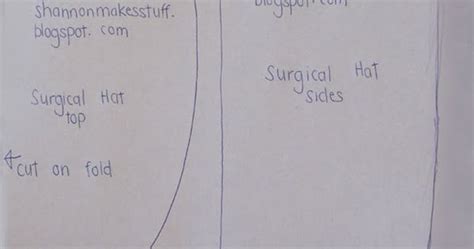 shannonmakesstuff.
blogspot.com
Surgical Hat
top
cut on fold
blogspot.com
Surgical Hat
sides